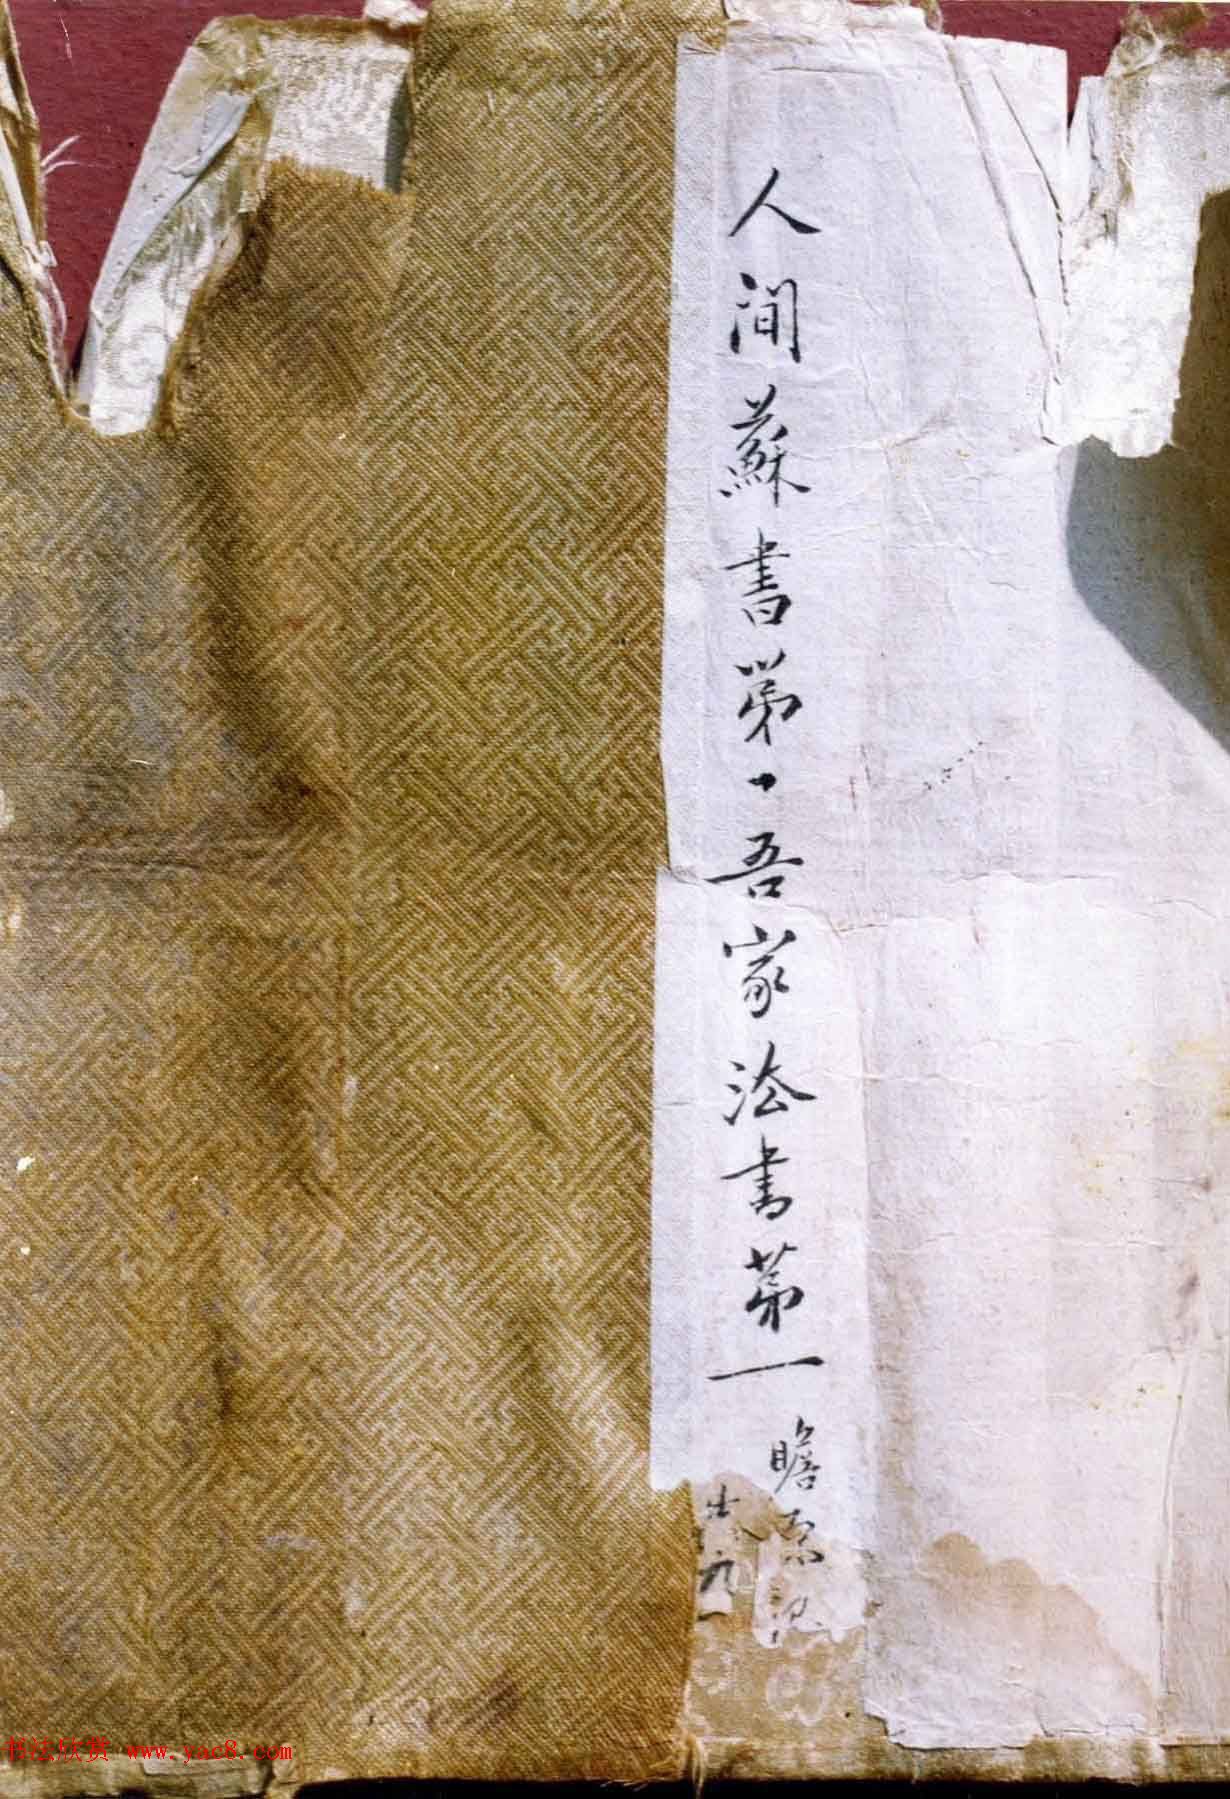 人間蘇書第一吾家法書第一
瞻
书法欣赏 www.yac8.com